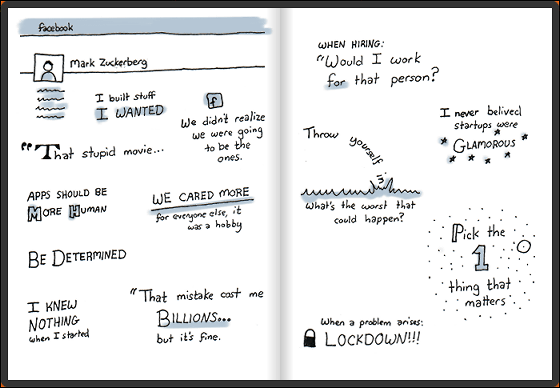 facebook
Mark Zuckerberg
I built stuff
I WANTED
f
We didn't realize
we were going
to be the
ones.
"That stupid movie...
APPS SHOULD BE
MORE HUMAN
WE CARED MORE
for everyone else, it
was a hobby
BE DETERMINED
I KNEW
NOTHING
when I started
"That mistake cost me
BILLIONS...
but it's fine.
WHEN HIRING:
"Would I work
for that person?
I never belived
startups were
GLAMOROUS
Throw yourself in.
What's the worst that
could happen?
Pick the
1
thing that
matters
When a problem arises:
LOCKDOWN!!!